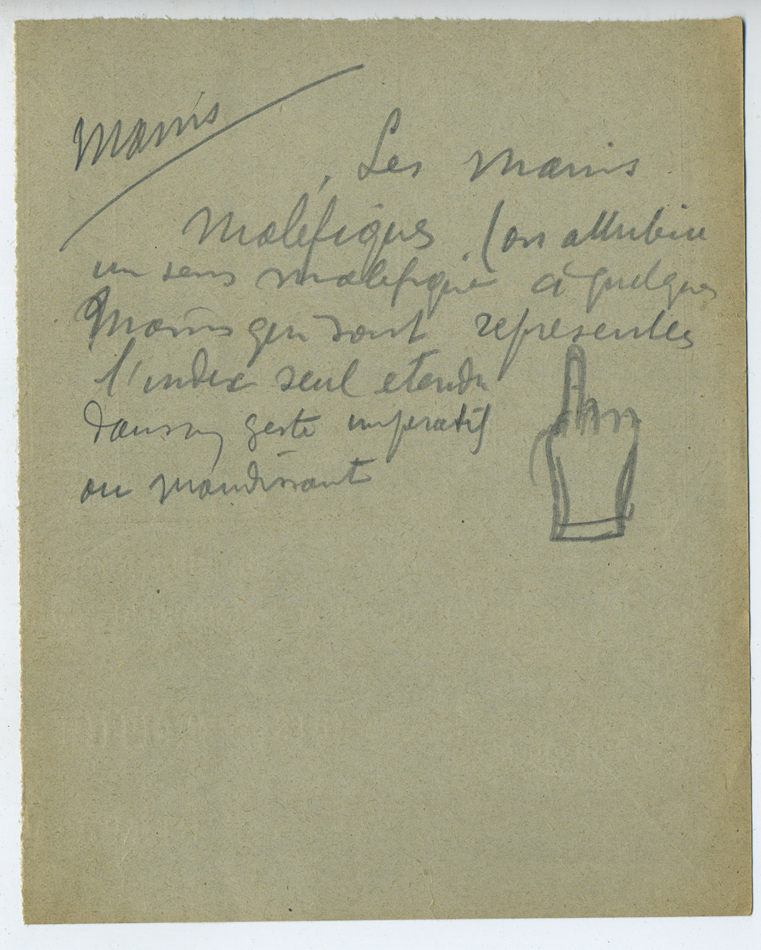 Mains
Les mains
maléfiques (on attribue
un sens malefique à quelques
Mains qui sont representes
l'index seul etendu
dans un geste imperatif
ou maudissant